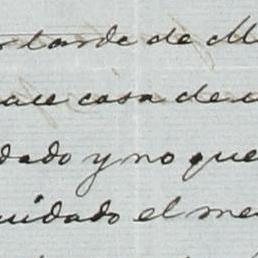 tarde de M
casa de
dado y no que
uidado el me